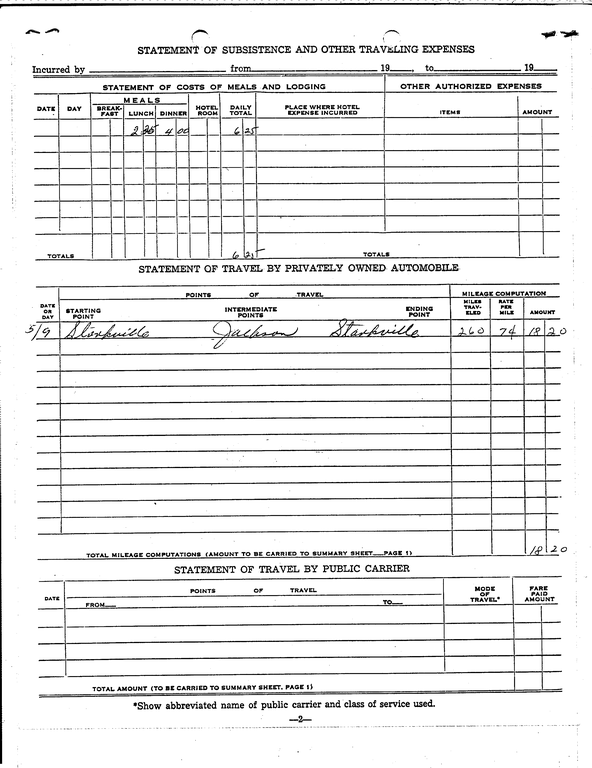 STATEMENT OF SUBSISTENCE AND OTHER TRAVELING EXPENSES
Incurred by from 19 to 19
STATEMENT OF COSTS OF MEALS AND LODGING OTHER AUTHORIZED EXPENSES
DATE DAY MEALS BREAK-FAST LUNCH DINNER HOTEL ROOM DAILY TOTAL PLACE WHERE HOTEL EXPENSE INCURRED ITEMS AMOUNT
2 25 4 00 6 25
TOTALS 6 25 TOTALS
STATEMENT OF TRAVEL BY PRIVATELY OWNED AUTOMOBILE
POINTS OF TRAVEL MILEAGE COMPUTATION
DATE OR DAY STARTING POINT INTERMEDIATE POINTS ENDING POINT MILES TRAV-ELED RATE PER MILE AMOUNT
5/9 Starkville Jackson Starkville 260 7¢ 18 20
TOTAL MILEAGE COMPUTATIONS (AMOUNT TO BE CARRIED TO SUMMARY SHEET—PAGE 1) 18 20
STATEMENT OF TRAVEL BY PUBLIC CARRIER
DATE POINTS OF TRAVEL MODE OF TRAVEL* FARE PAID AMOUNT
FROM— TO—
TOTAL AMOUNT (TO BE CARRIED TO SUMMARY SHEET, PAGE 1)
*Show abbreviated name of public carrier and class of service used.
—2—